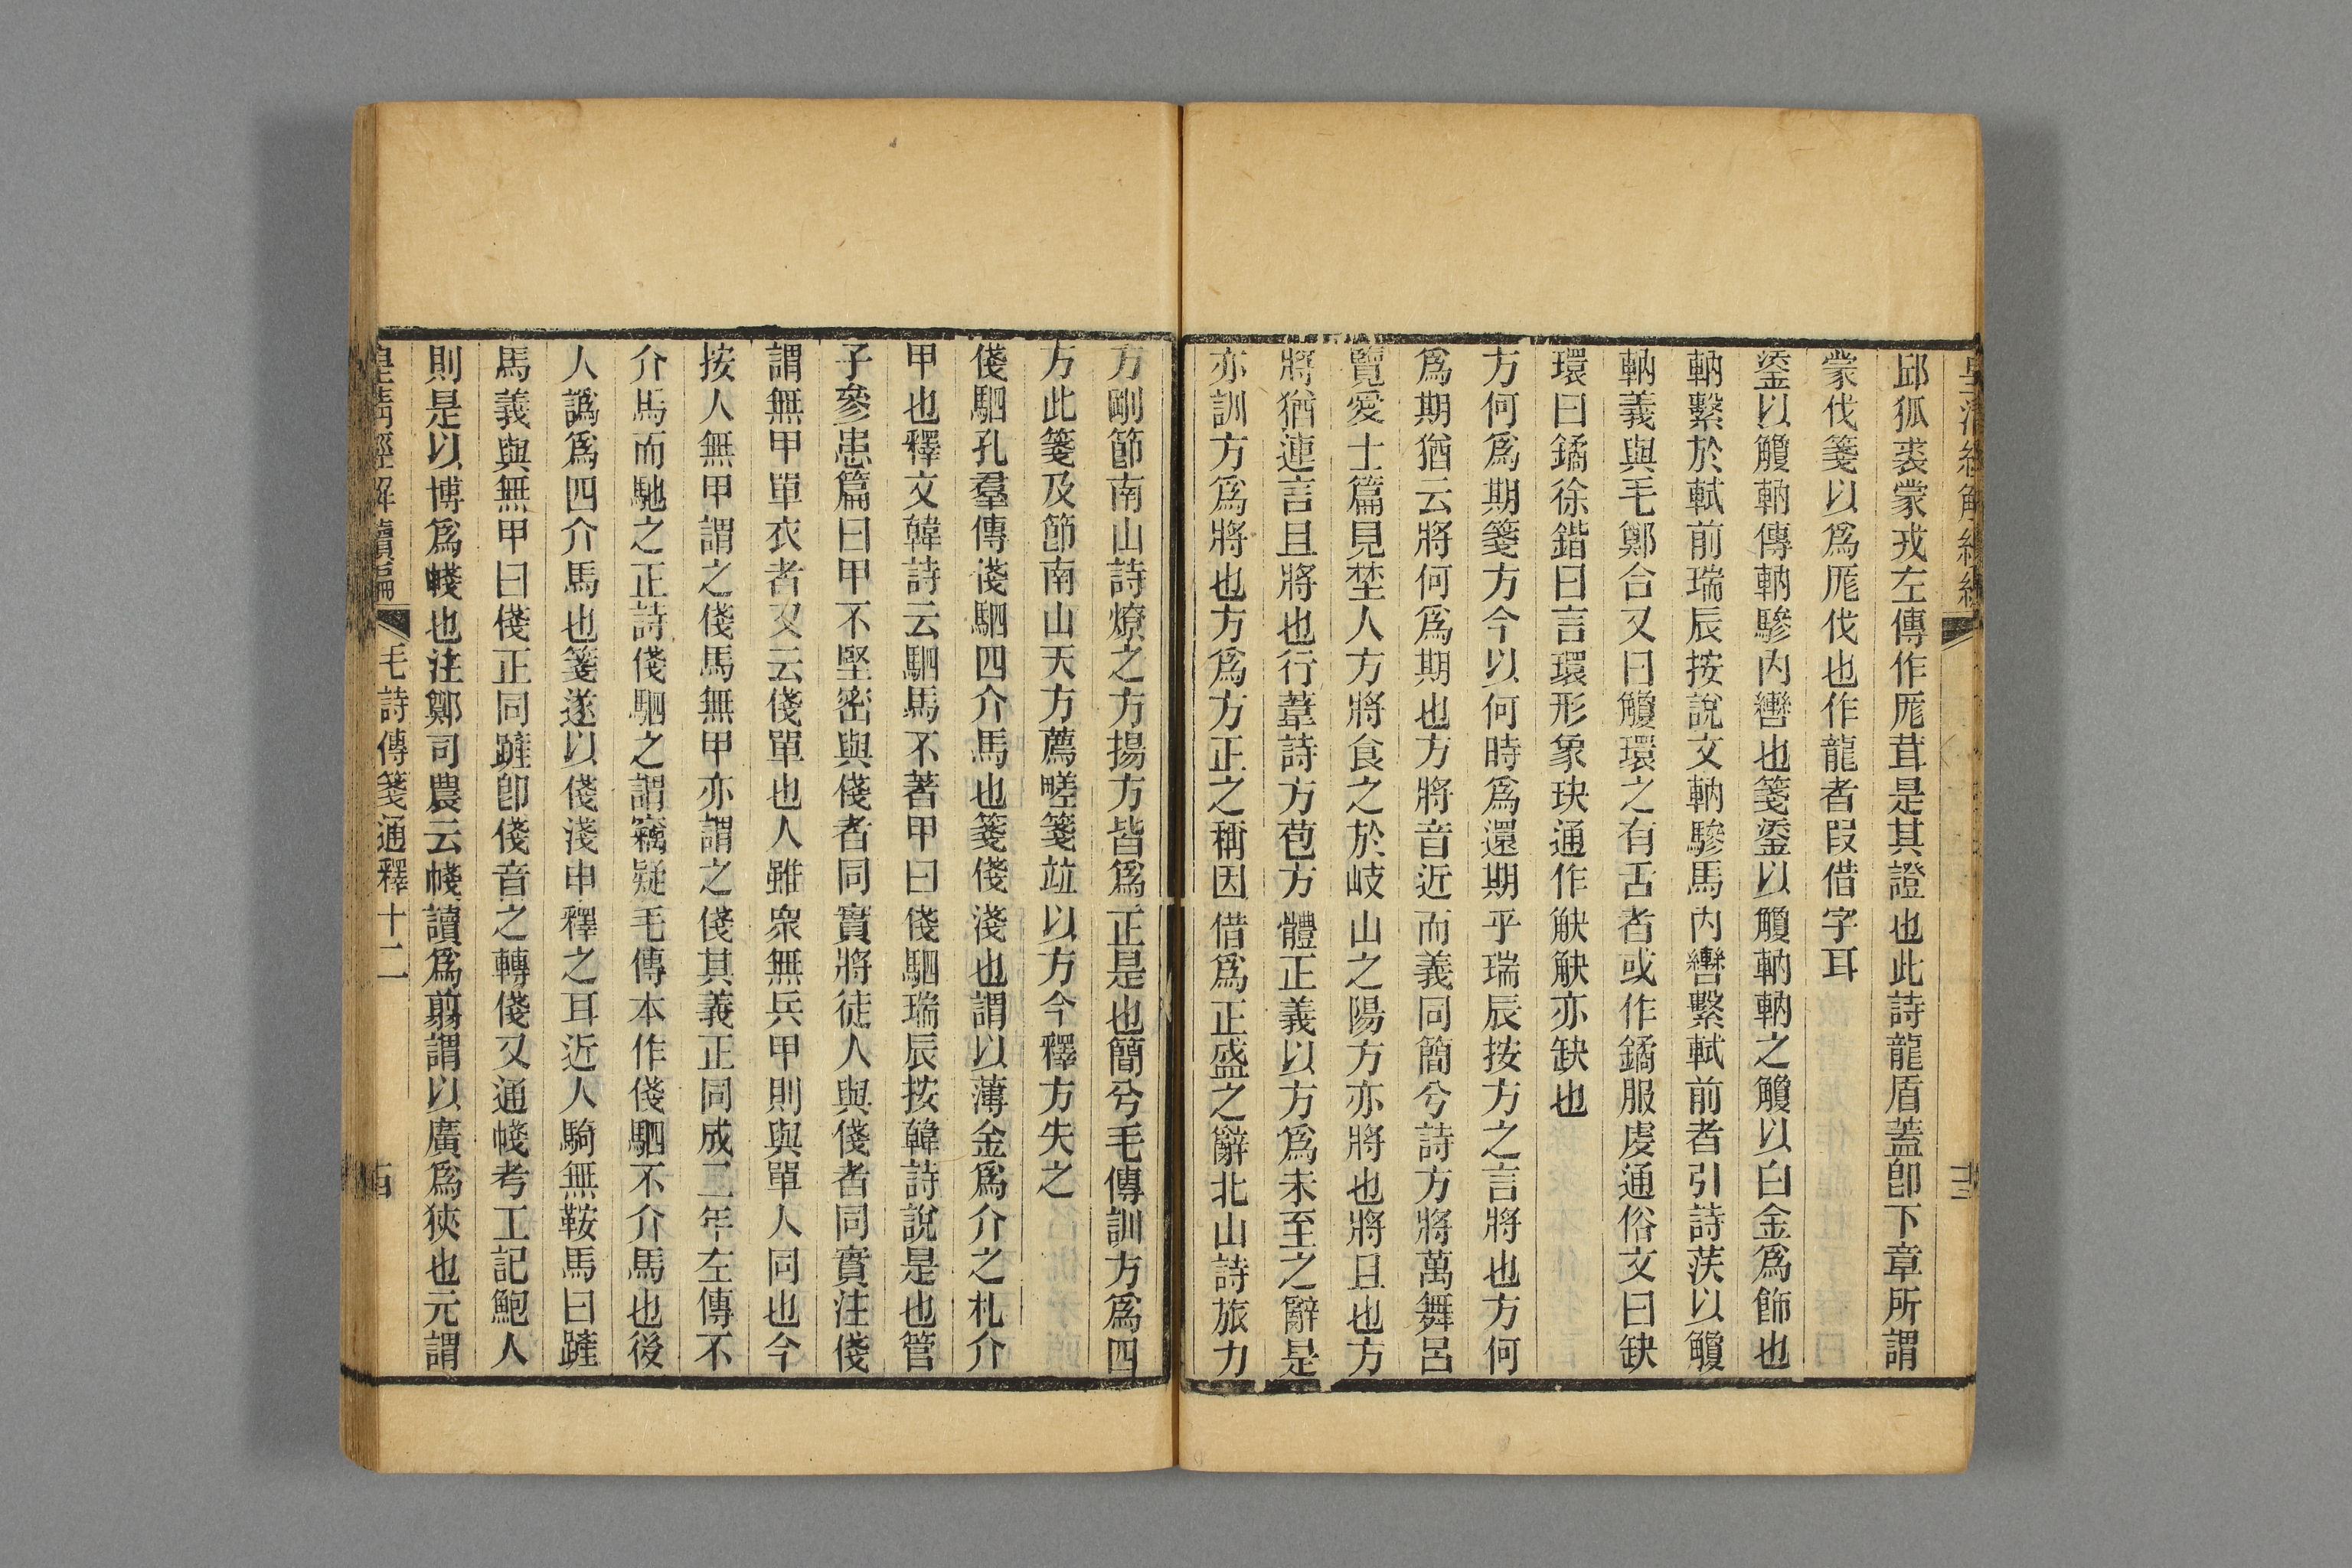 邱狐裘蒙戎左傳作厖茸是其證也此詩龍盾蓋卽下章所謂
蒙伐箋以爲厖伐也作龍者叚借字耳
鋈以觼軜傳軜驂內轡也箋鋈以觼軜軜之觼以白金爲飾也
軜繫於軾前瑞辰按說文軜驂馬內轡繫軾前者引詩茨以觼
軜義與毛鄭合又曰觼環之有舌者或作鐍服虔通俗文曰缺
環曰鐍徐鍇曰言環形象玦通作觖觖亦缺也
方何爲期箋方今以何時爲還期乎瑞辰按方之言將也方何
爲期猶云將何爲期也方將音近而義同簡兮詩方將萬舞呂
覽愛士篇見埜人方將食之於岐山之陽方亦將也將且也方
將猶連言且將也行葦詩方苞方體正義以方爲未至之辭是
亦訓方爲將也方爲方正之稱因借爲正盛之辭北山詩旅力
方剛節南山詩燎之方揚方皆爲正是也簡兮毛傳訓方爲四
方此箋及節南山天方薦瞱箋竝以方今釋方失之
俴駟孔羣傳俴駟四介馬也箋俴淺也謂以薄金爲介之札介
甲也釋文韓詩云駟馬不著甲曰俴駟瑞辰按韓詩說是也管
子參患篇曰甲不堅密與俴者同實將徒人與俴者同實注俴
謂無甲單衣者又云俴單也人雖衆無兵甲則與單人同也今
按人無甲謂之俴馬無甲亦謂之俴其義正同成二年左傳不
介馬而馳之正詩俴駟之謂竊疑毛傳本作俴駟不介馬也後
人譌爲四介馬也箋遂以俴淺申釋之耳近人騎無鞍馬曰蹝
馬義與無甲曰俴正同蹝卽俴音之轉俴又通帴考工記鮑人
則是以博爲帴也注鄭司農云帴讀爲翦謂以廣爲狹也元謂
皇淸經解續編 毛詩傳箋通釋十二